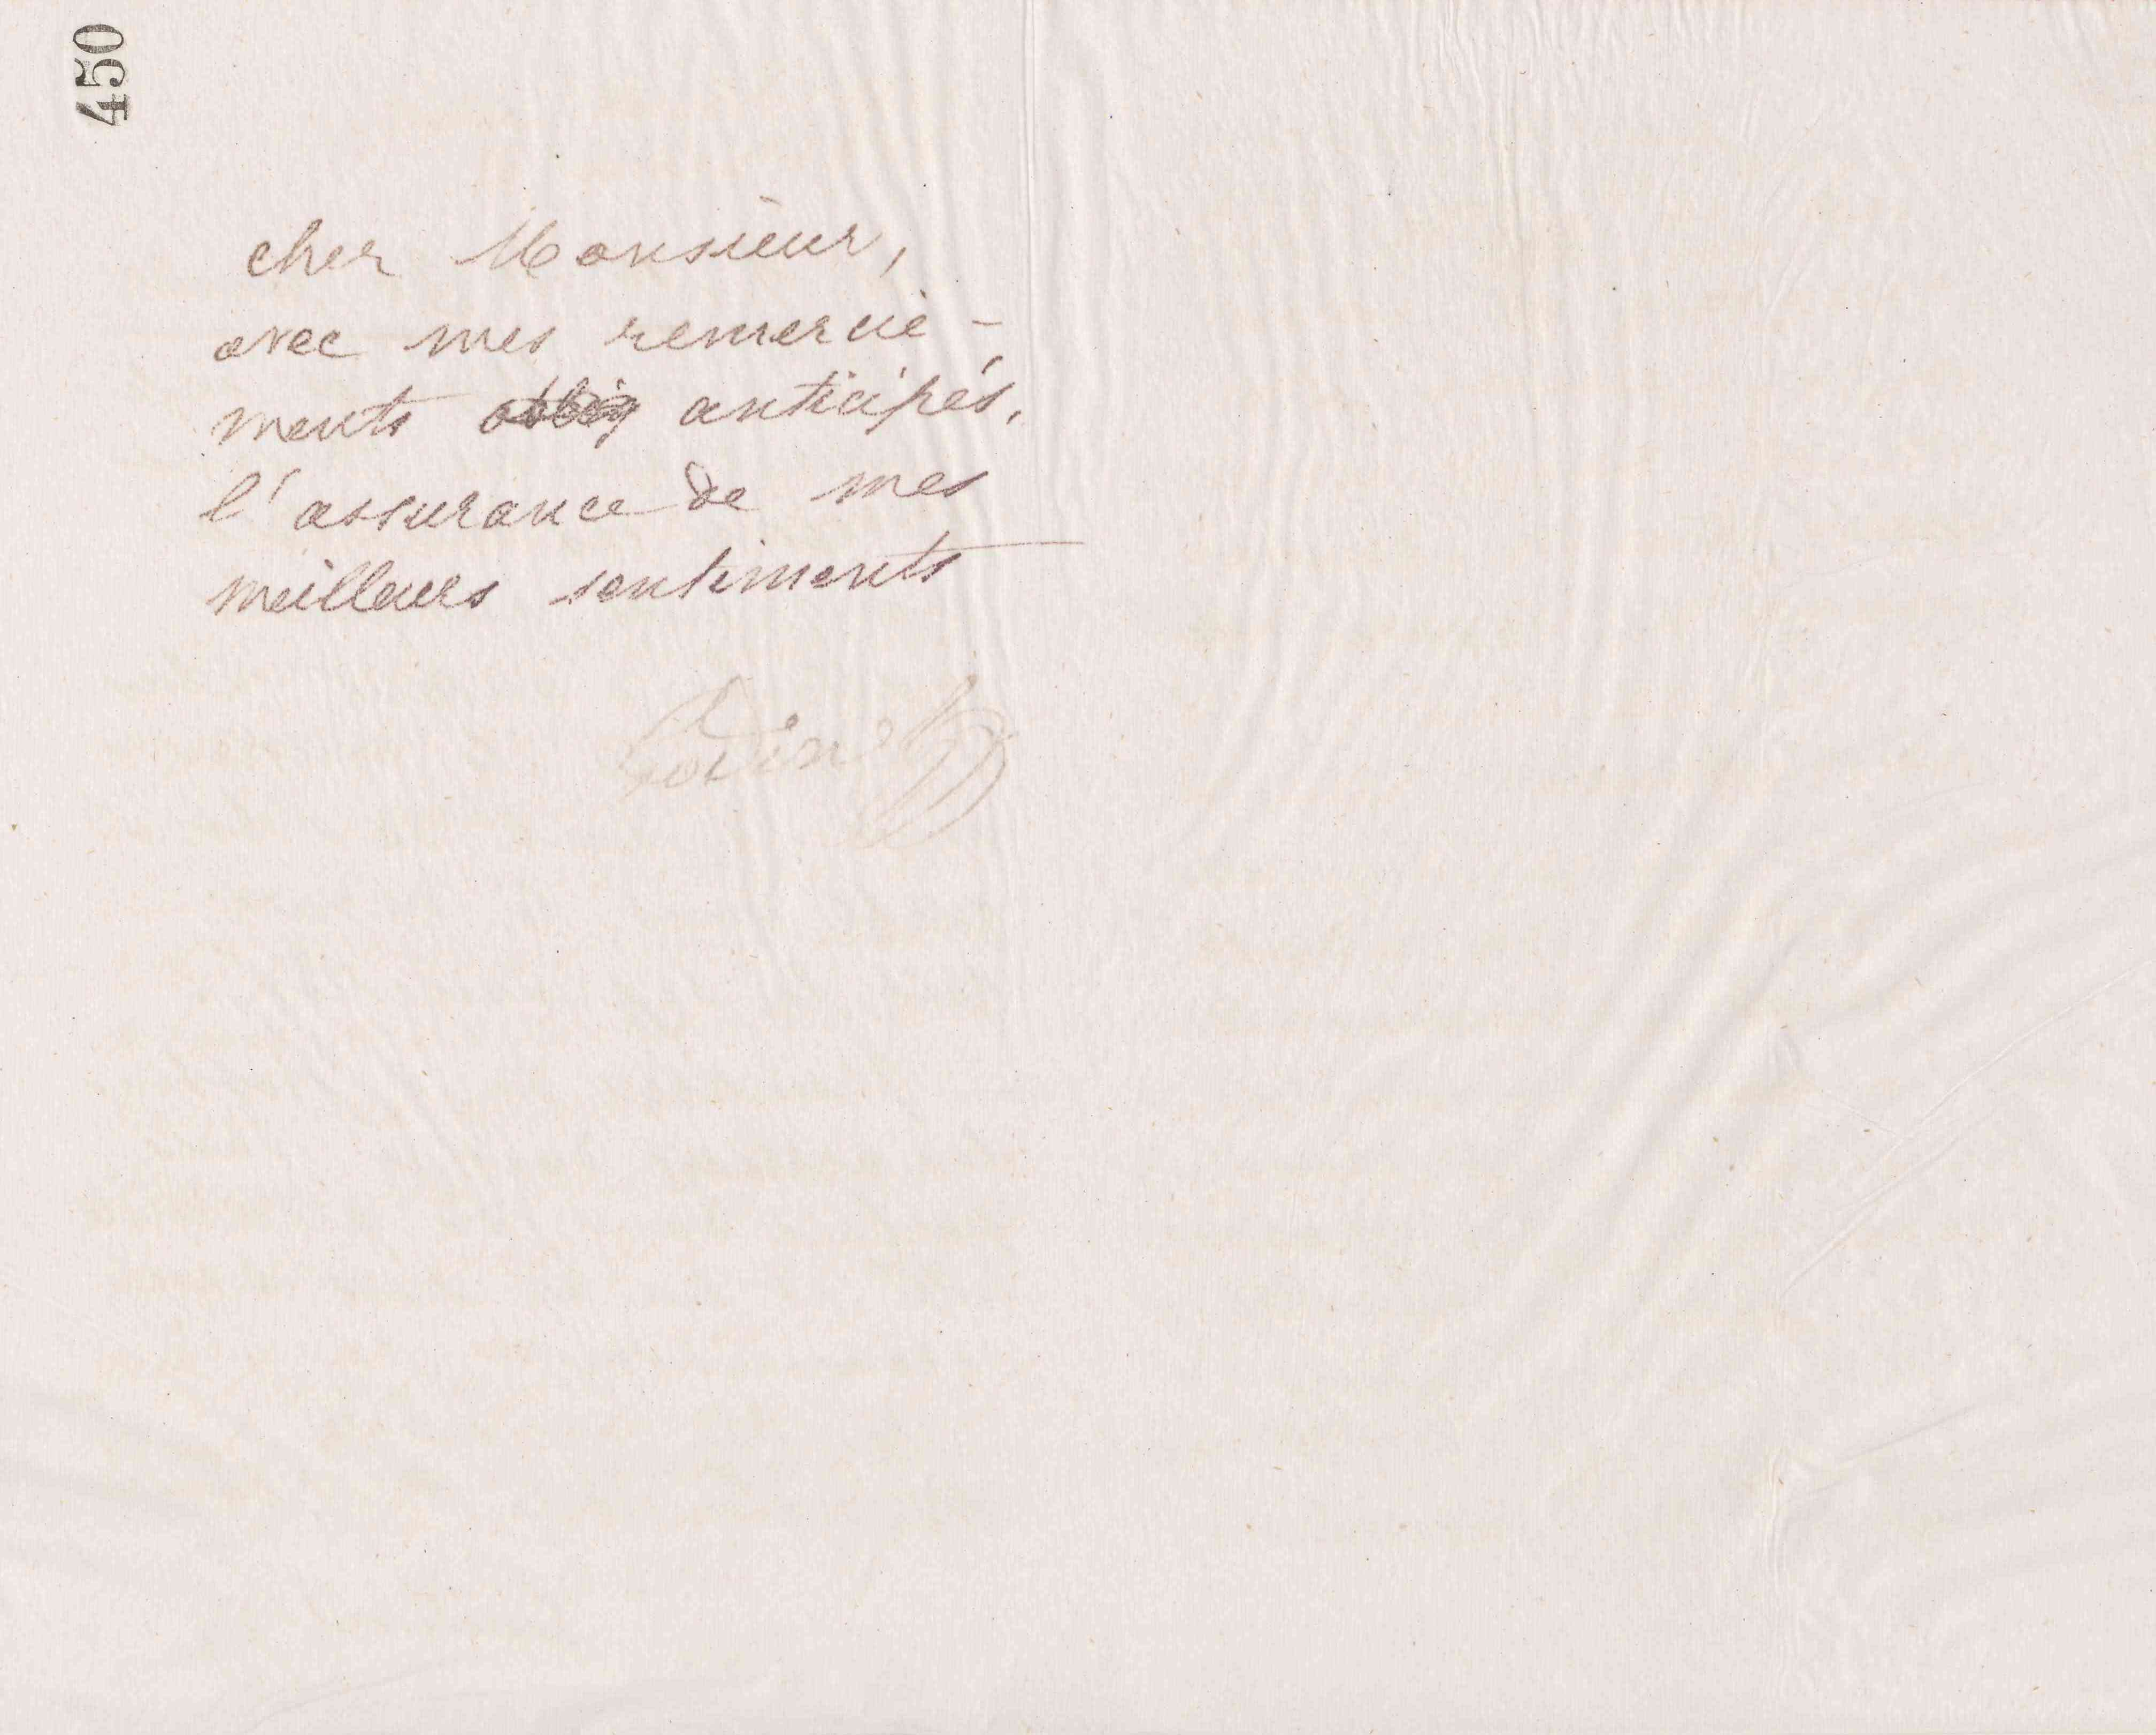 450
cher Monsieur,
avec mes remercie-
ments anticipés,
l'assurance de mes
meilleurs sentiments
Godin